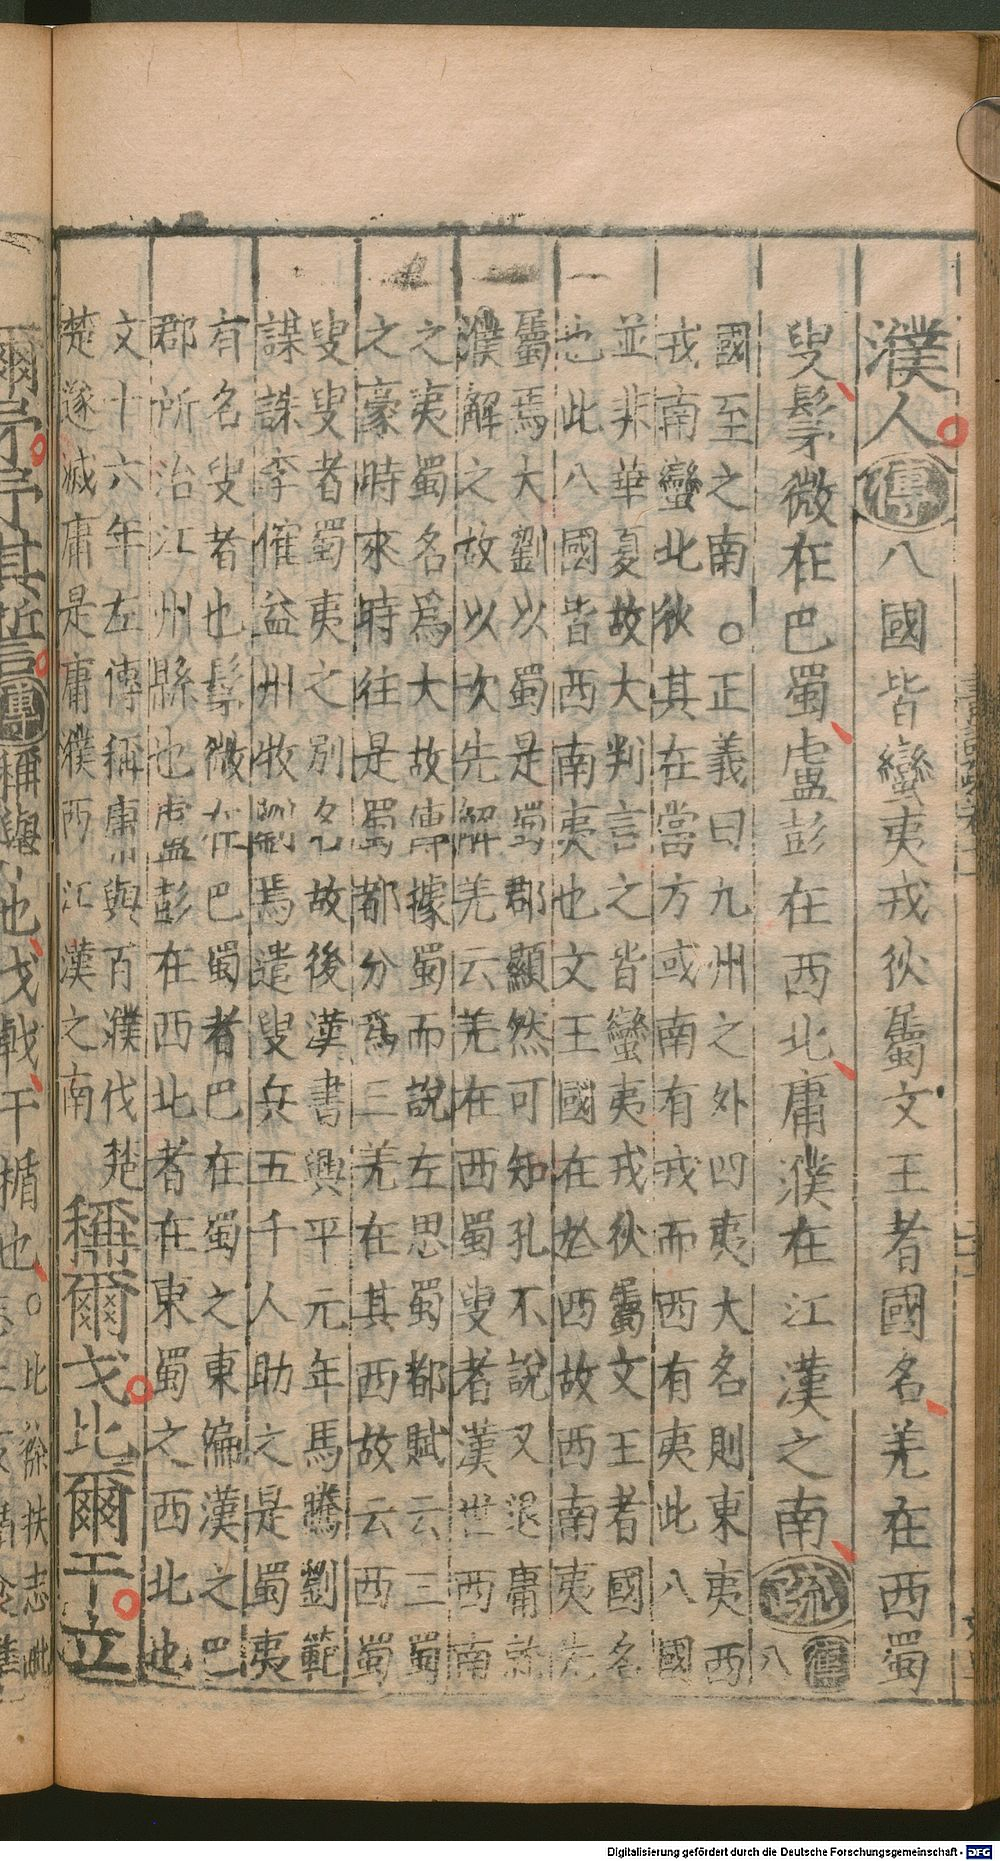 濮人傳八國皆蠻夷戎狄屬文王者國名羌在西蜀
叟髳微在巴蜀盧彭在西北庸濮在江漢之南疏
舊
八
國至之南○正義曰九州之外四夷大名則東夷西
戎南蠻北狄其在當方或南有戎而西有夷此八國
並非華夏故大判言之皆蠻夷戎狄屬文王者國名
也此八國皆西南夷也文王國在於西故西南夷先
屬焉大劉以蜀是蜀郡顯然可知孔不說又退庸就
濮解之故以次先解羌云羌在西蜀叟者漢世西南
之夷蜀名為大故傳據蜀而說左思蜀都賦云三蜀
之豪時來時往是蜀都分為三羌在其西故云西蜀
叟叟者蜀夷之別名故後漢書興平元年馬騰劉範
謀誅李傕益州牧劉焉遣叟兵五千人助之是蜀夷
有名叟者也髳微在巴蜀者巴在蜀之東偏漢之巴
郡所治江州縣也盧彭在西北者在東蜀之西北也
文十六年左傳稱庸與百濮伐楚
楚遂滅庸是庸濮西江漢之南
稱爾戈比爾干立
爾矛予其誓傳稱舉也戈戟干楯也○
比徐扶志
Digitalisierung gefördert durch die Deutsche Forschungsgemeinschaft - DFG